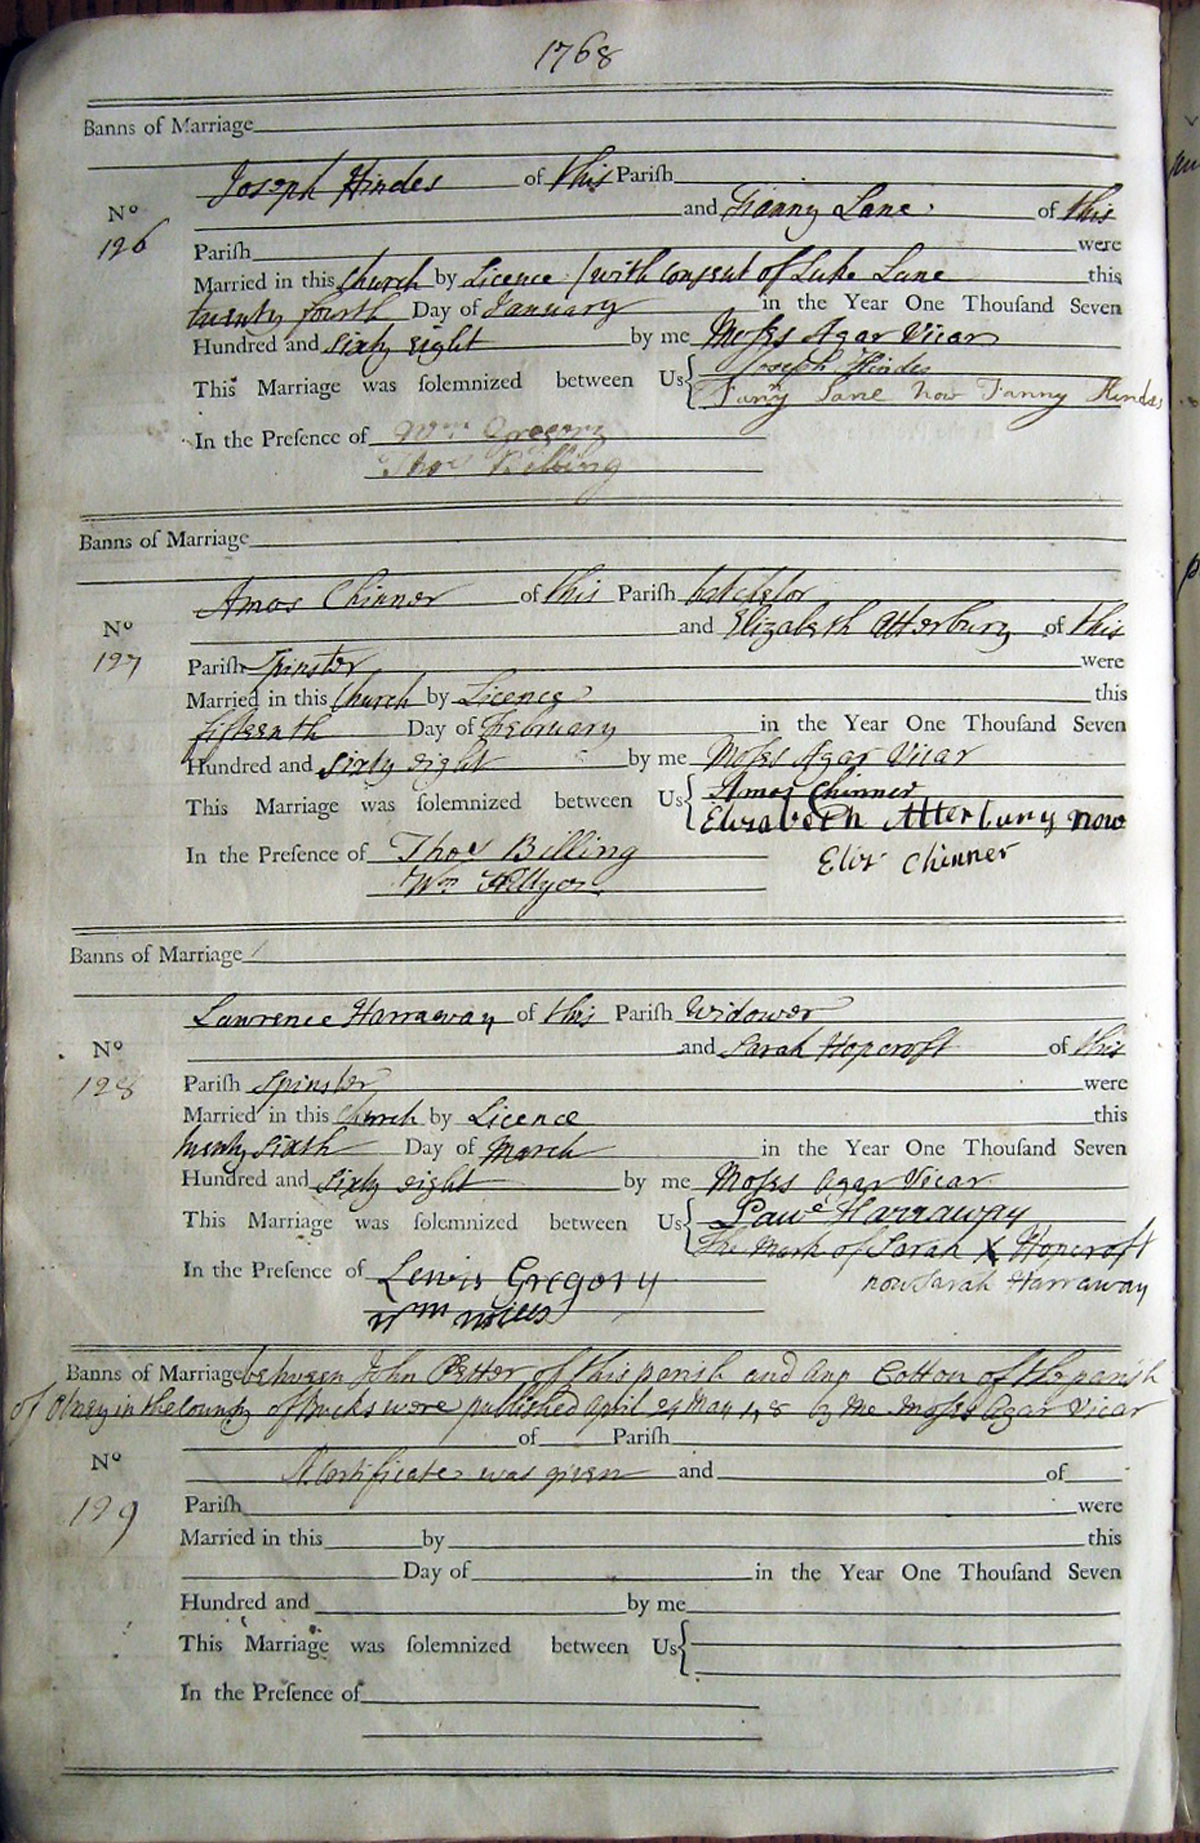 1768
Banns of Marriage
Joseph Hindes of this Parish
No
126
and Fanny Lane of this
Pariſh were
Married in this Church by Licence / with Consent of Luke Lane this
twenty fourth Day of January in the Year One Thouſand Seven
Hundred and Sixty eight by me Moſes Agar Vicar
This Marriage was ſolemnized between Us Joseph Hindes
Fanny Lane now Fanny Hindes
In the Preſence of Wm Gregory
Thos Billing
Banns of Marriage
Amos Chinner of this Pariſh batchelor
No
127
and Elizabeth Atterbury of this
Pariſh Spinster were
Married in this Church by Licence this
fifteenth Day of February in the Year One Thouſand Seven
Hundred and Sixty eight by me Moſes Agar Vicar
This Marriage was ſolemnized between Us Amos Chinner
Elizabeth Atterbury now
Eliz Chinner
In the Preſence of Thos Billing
Wm
Banns of Marriage
Lawrence Harraway of this Pariſh Widower
No
128
and Sarah Hopcroft of this
Pariſh Spinster were
Married in this Church by Licence this
twenty Sixth Day of March in the Year One Thouſand Seven
Hundred and Sixty eight by me Moſes Agar Vicar
This Marriage was ſolemnized between Us Lawe Harraway
The Mark of Sarah X Hopcroft
now Sarah Harraway
In the Preſence of Lewis Gregory
Wm
Banns of Marriage between John of this parish and Ann Cotton of the parish
of Olney in the County of Bucks were published April 24 May 1, 8 by Me Moſes Agar Vicar
of Pariſh
No
129
A Certificate was given and of
Pariſh were
Married in this by this
Day of in the Year One Thouſand Seven
Hundred and by me
This Marriage was ſolemnized between Us
In the Preſence of